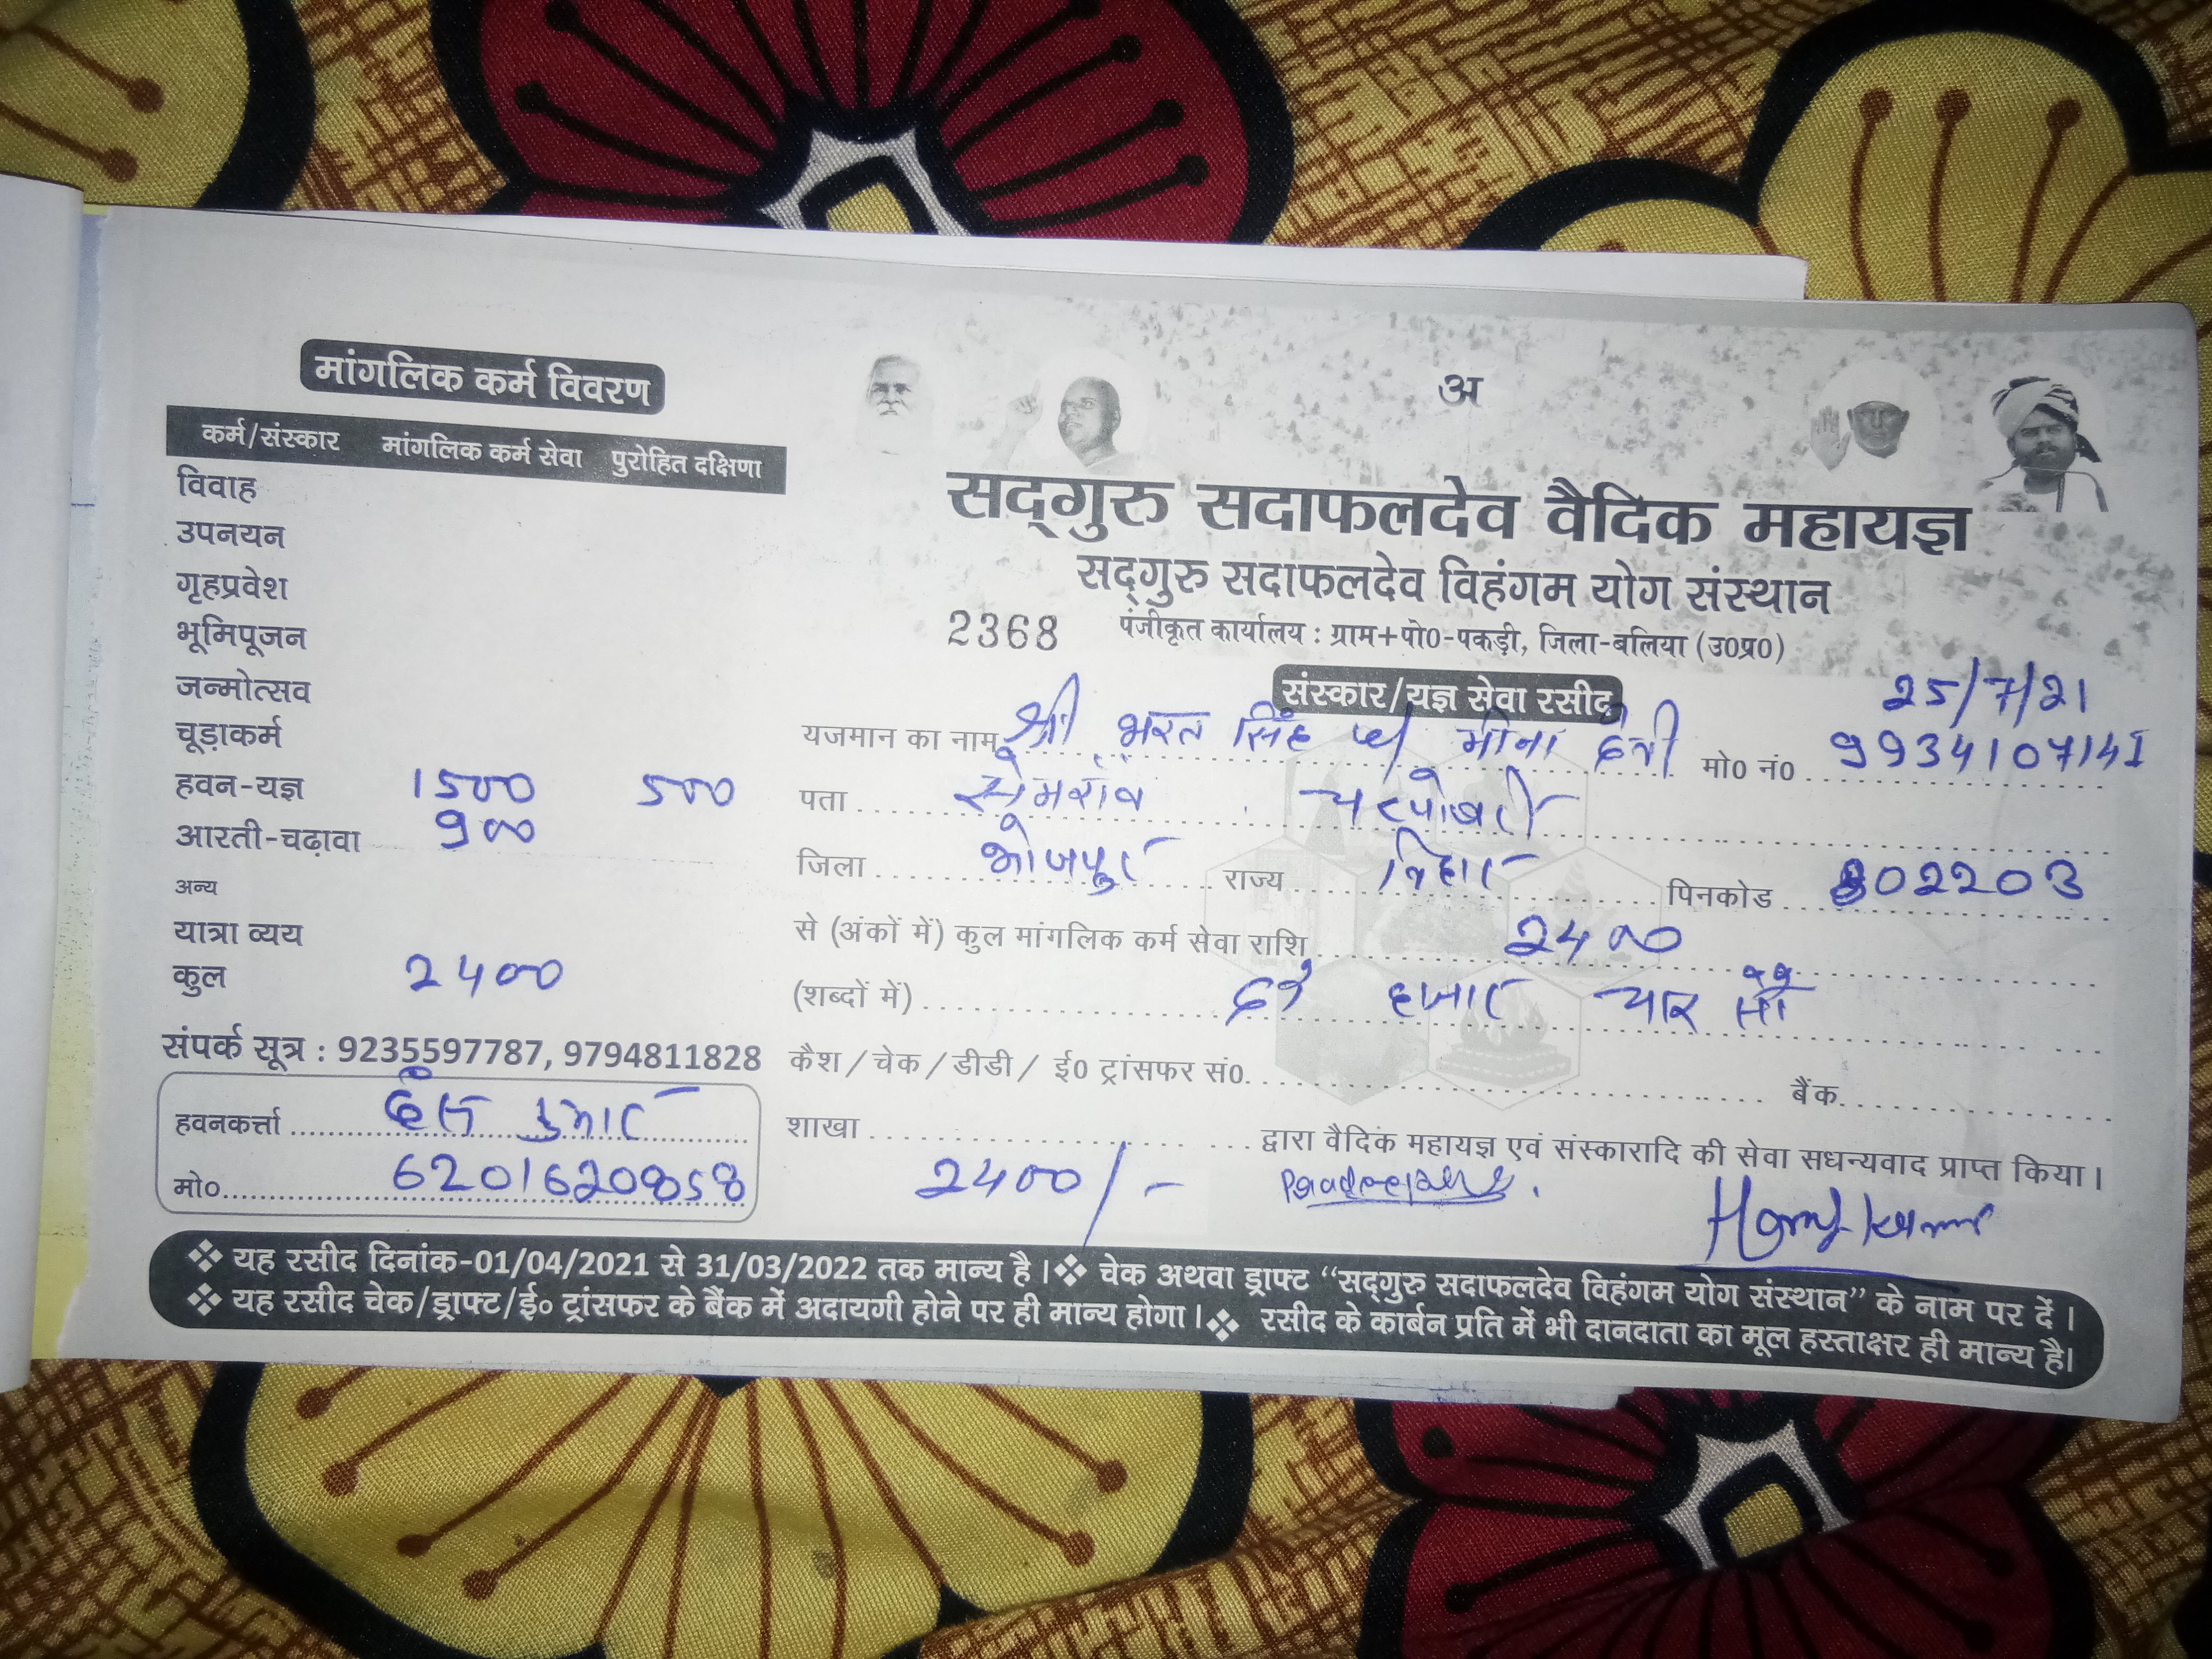 मांगलिक कर्म विवरण
कर्म/संस्कार मांगलिक कर्म सेवा पुरोहित दक्षिणा
विवाह
उपनयन
गृहप्रवेश
भूमिपूजन
जन्मोत्सव
चूड़ाकर्म
हवन-यज्ञ 1500 500
आरती-चढ़ावा 900
अन्य
यात्रा व्यय
कुल 2400
संपर्क सूत्र : 9235597787, 9794811828
हवनकर्त्ता कुमार
मो० 6201620858
अ
सद्गुरु सदाफलदेव वैदिक महायज्ञ
सद्गुरु सदाफलदेव विहंगम योग संस्थान
2368 पंजीकृत कार्यालय : ग्राम+पो0-पकड़ी, जिला-बलिया (उ0प्र0)
संस्कार/यज्ञ सेवा रसीद 25/7/21
यजमान का नाम श्री भरत सिंह मीना देवी मो0 नं0 9934107141
पता सेमरांव चरपोखरी
जिला भोजपुर राज्य बिहार पिनकोड 802203
से (अंकों में) कुल मांगलिक कर्म सेवा राशि 2400
(शब्दों में) दो हजार चार सौ
कैश / चेक / डीडी / ई0 ट्रांसफर सं0 बैंक
शाखा द्वारा वैदिक महायज्ञ एवं संस्कारादि की सेवा सधन्यवाद प्राप्त किया।
2400/-
❖ यह रसीद दिनांक-01/04/2021 से 31/03/2022 तक मान्य है। ❖ चेक अथवा ड्राफ्ट “सद्गुरु सदाफलदेव विहंगम योग संस्थान” के नाम पर दें।
❖ यह रसीद चेक/ड्राफ्ट/ई० ट्रांसफर के बैंक में अदायगी होने पर ही मान्य होगा। ❖ रसीद के कार्बन प्रति में भी दानदाता का मूल हस्ताक्षर ही मान्य है।